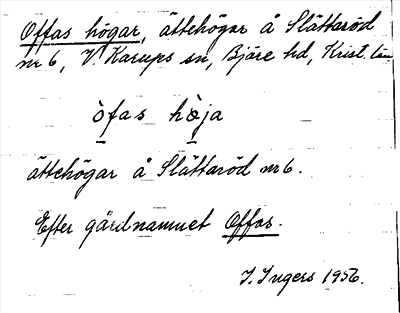 Offas högar, ättehögar å Slättaröd
nr 6, V. Karups sn, Bjäre hd, Krist. län
òfas hø̀ja
ättehögar å Slättaröd nr 6.
Efter gårdnamnet Offas.
I. Ingers 1956.